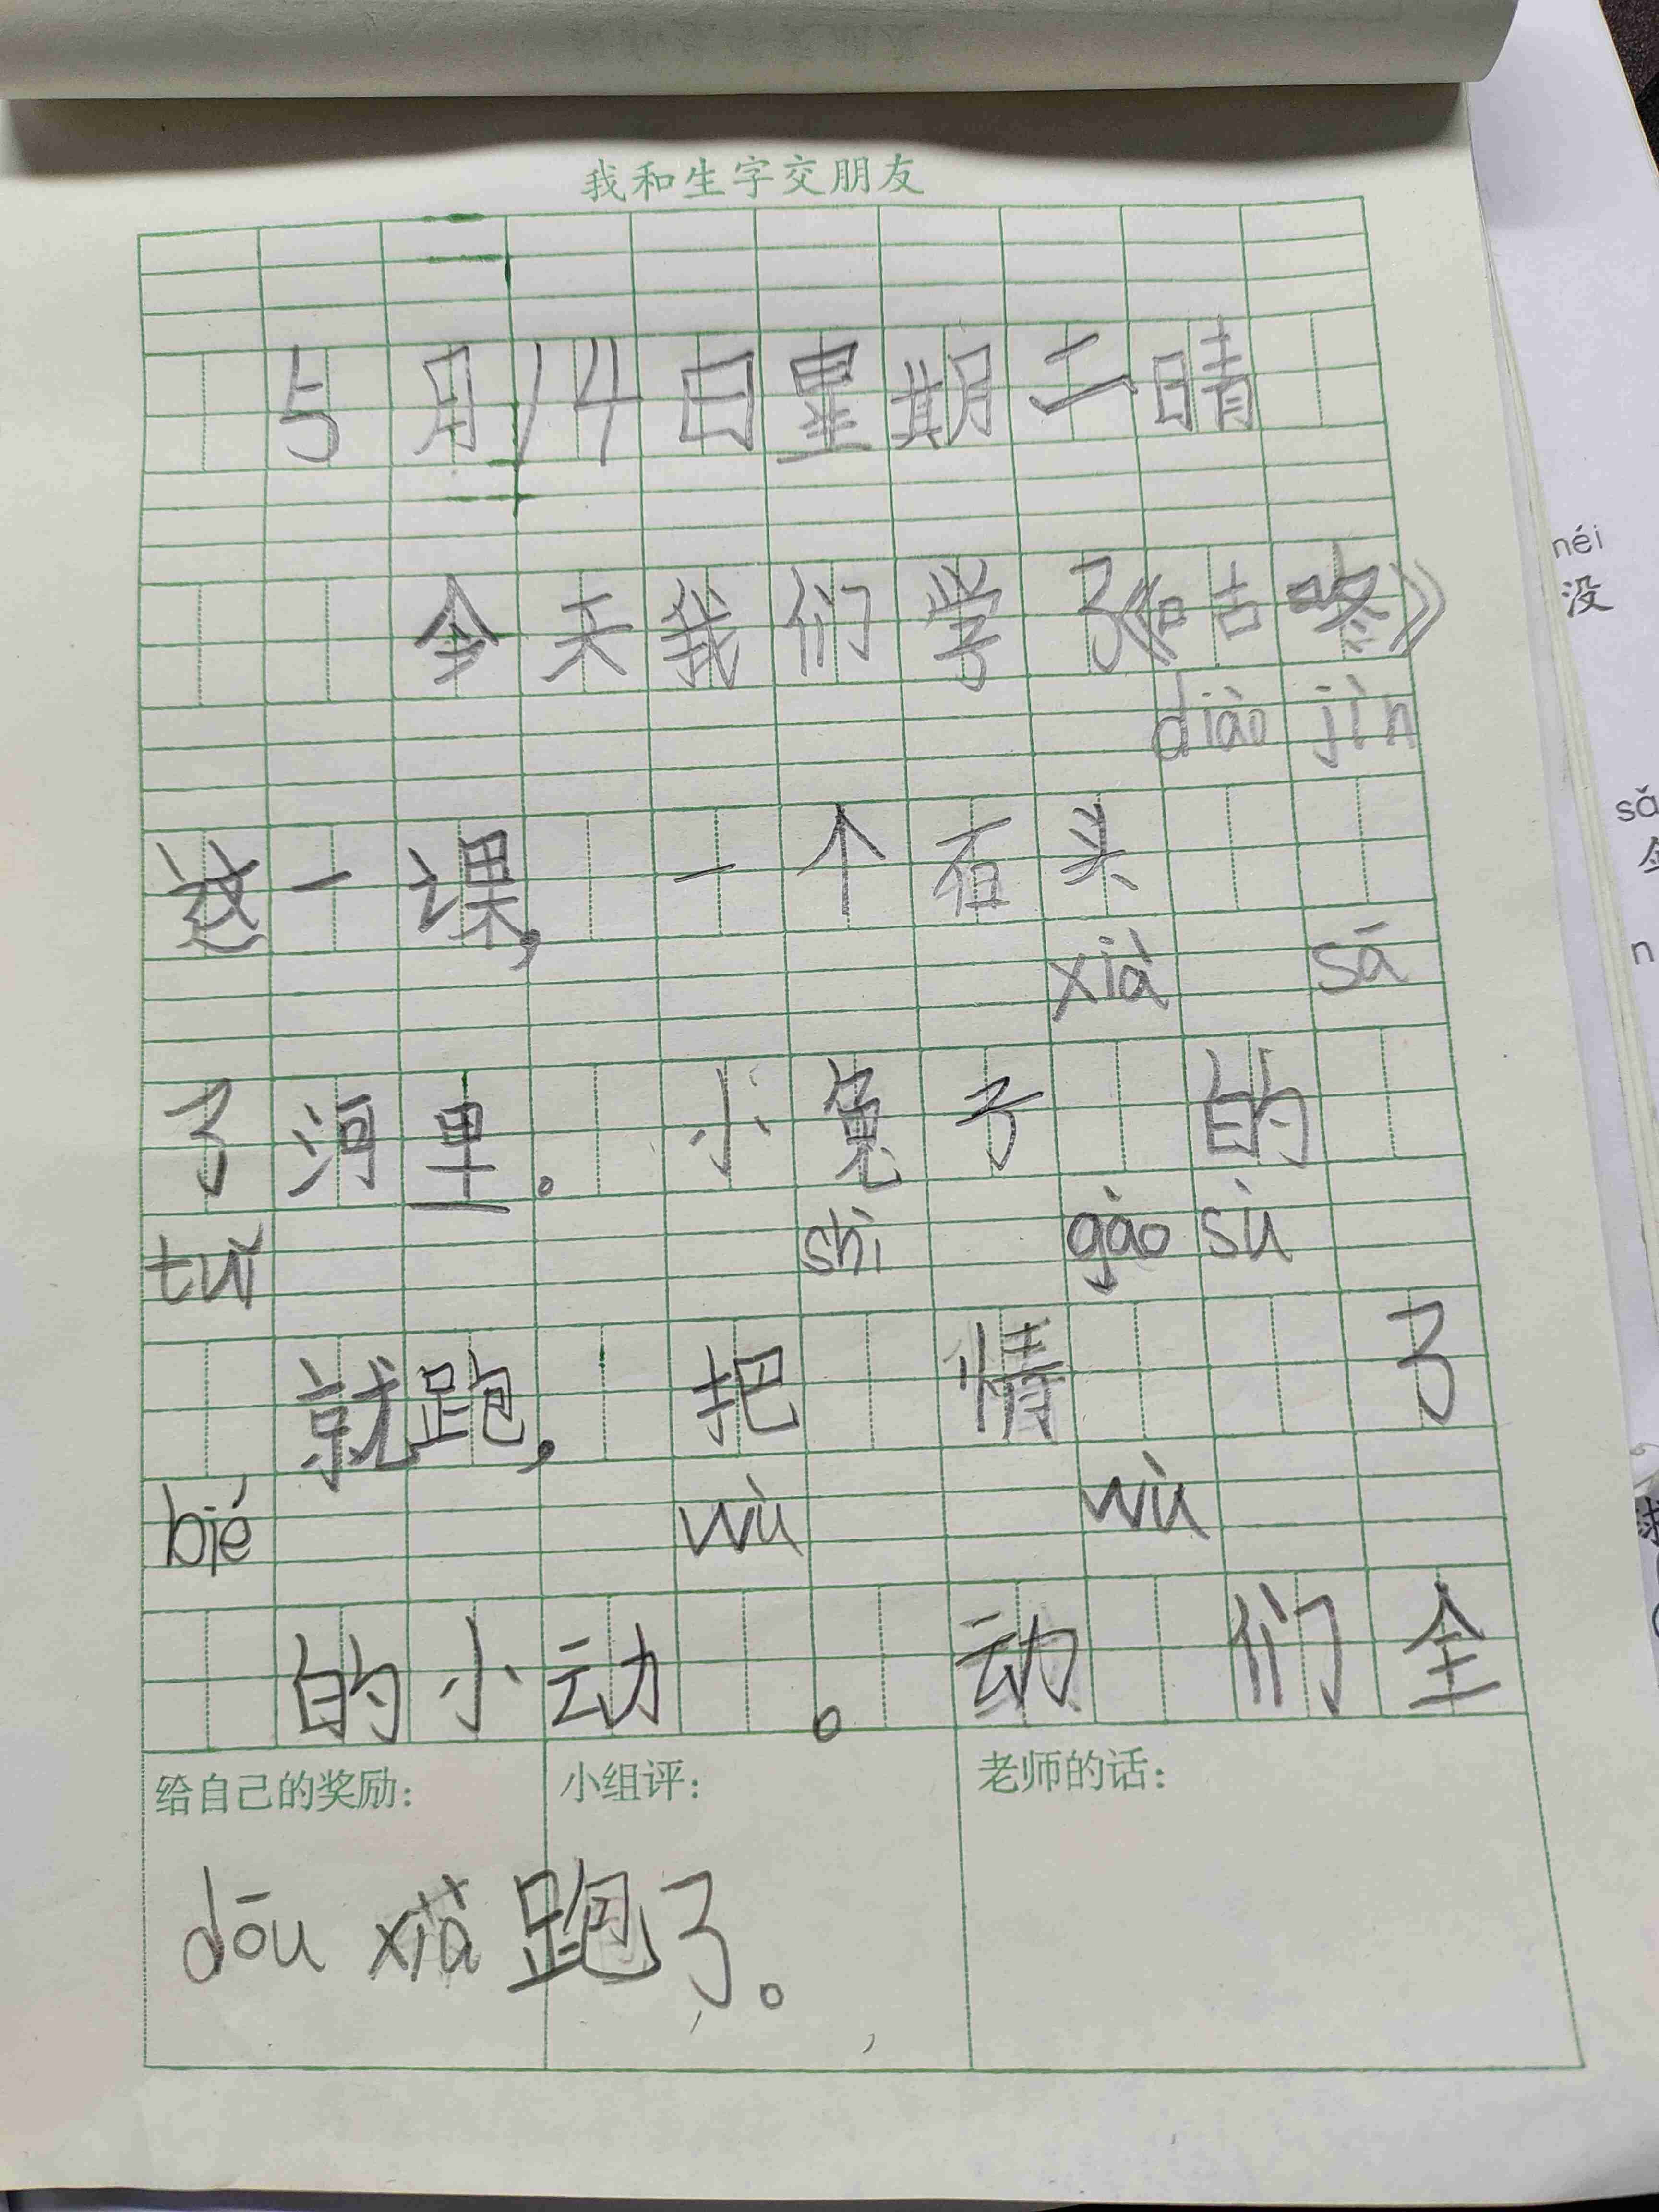 我和生字交朋友
5月14日星期二晴
今天我们学了《咕咚》
diào jìn
这一课，一个石头
xià sá
了河里。小兔子 的
tuǐ shì gào sù
就跑，把 情 了
bié wù wù
的小动 。动 们全
给自己的奖励： 小组评： 老师的话：
dōu xià 跑了。
néi
没
sǎ
n